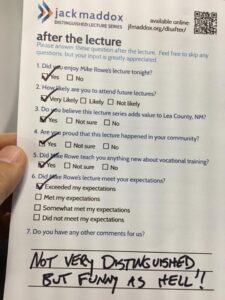 jackmaddox
DISTINGUISHED LECTURE SERIES
available online:
jfmaddox.org/dlsafter/
after the lecture
Please answer these question after the lecture. Feel free to skip any
questions, but your input is greatly appreciated.
1. Did you enjoy Mike Rowe's lecture tonight?
Yes No
2. How likely are you to attend future lectures?
Very Likely Likely Not likely
3. Do you believe this lecture series adds value to Lea County, NM?
Yes Not sure No
4. Are you proud that this lecture happened in your community?
Yes Not sure No
5. Did Mike Rowe teach you anything new about vocational training?
Yes Not sure No
6. Did Mike Rowe's lecture meet your expectations?
Exceeded my expectations
Met my expectations
Somewhat met my expectations
Did not meet my expectations
7. Do you have any other comments for us?
NOT VERY DISTINGUISHED
BUT FUNNY AS HELL!!